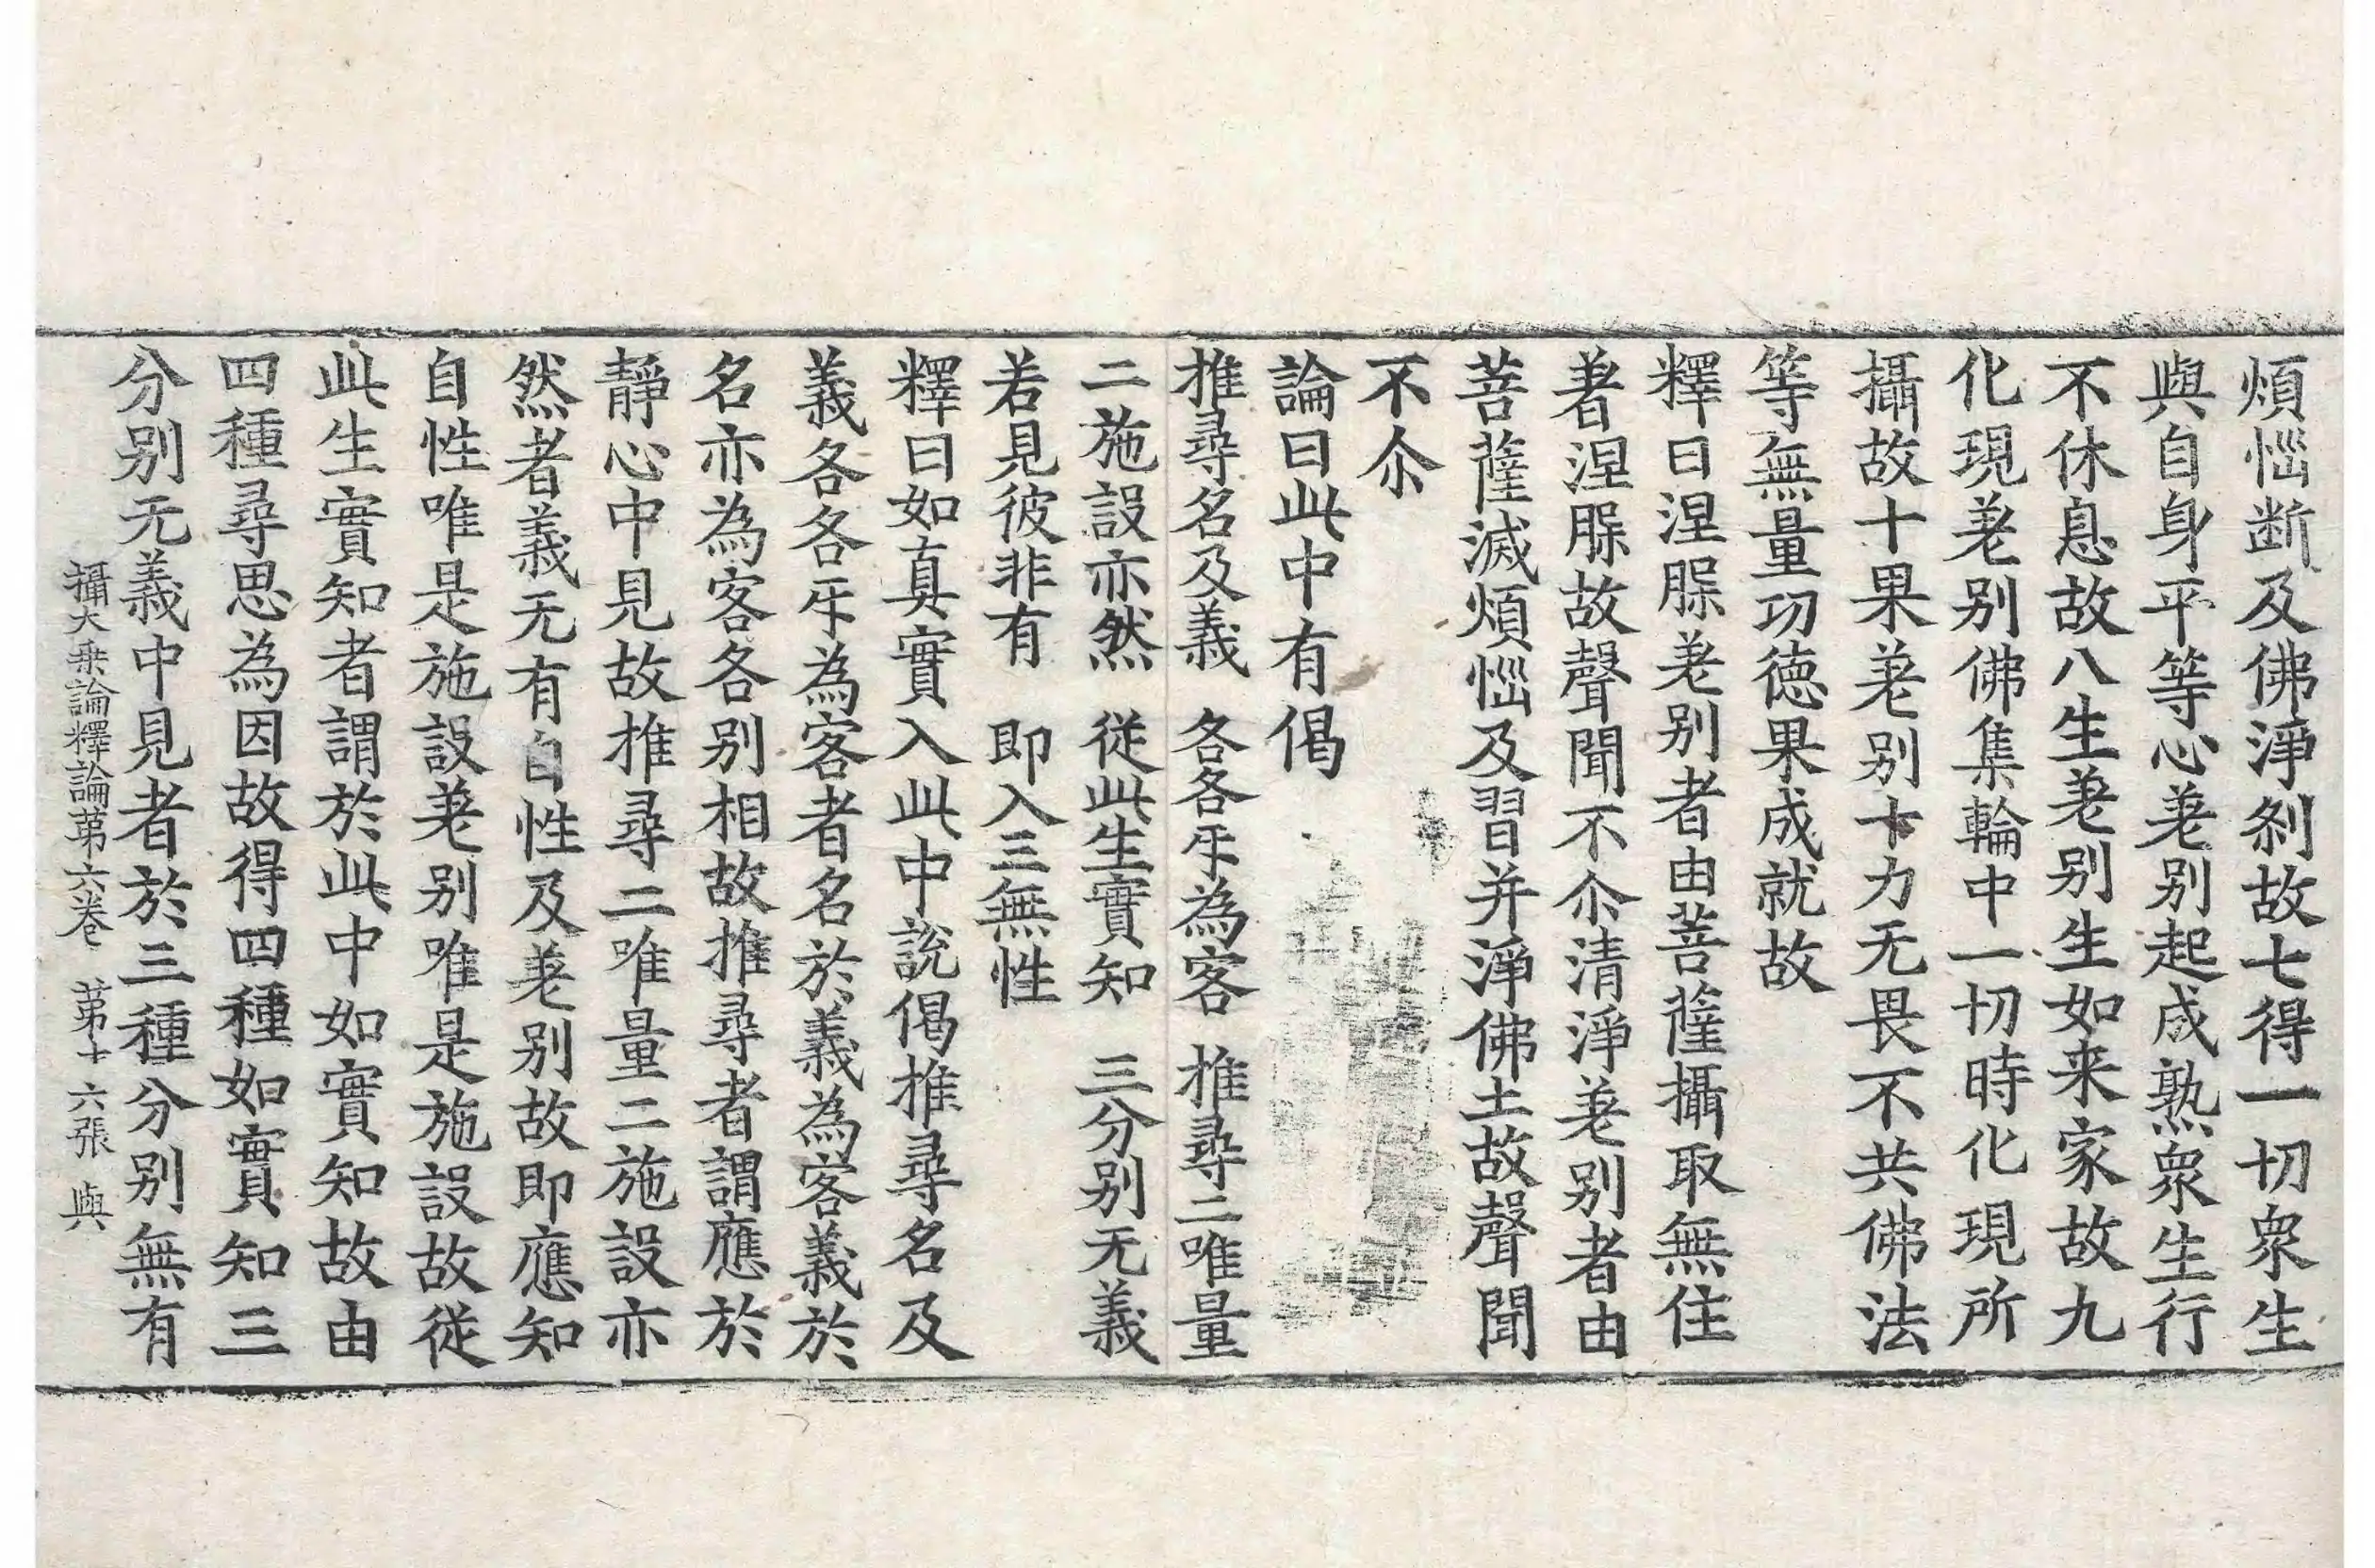 煩惱断及佛淨刹故七得一切衆生
與自身平等心差别起成熟衆生行
不休息故八生差别生如来家故九
化現差别佛集輪中一切時化現所
攝故十果差别十力无畏不共佛法
等無量功德果成就故
釋曰涅槃差别者由菩薩攝取無住
著涅槃故聲聞不尒清淨差别者由
菩薩滅煩惱及習并淨佛土故聲聞
不尒
論曰此中有偈
推尋名及義　各各𤓰為客　推尋二唯量
二施設亦然　従此生實知　三分别无義
若見彼非有　即入三無性
釋曰如真實入此中說偈推尋名及
義各各𤓰為客者名於義為客義於
名亦為客各别相故推尋者謂應於
静心中見故推尋二唯量二施設亦
然者義无有自性及差别故即應知
自性唯是施設差别唯是施設故従
此生實知者謂於此中如實知故由
四種尋思為因故得四種如實知三
分别无義中見者於三種分别無有
攝大乗論釋論第六卷　第十六張　與